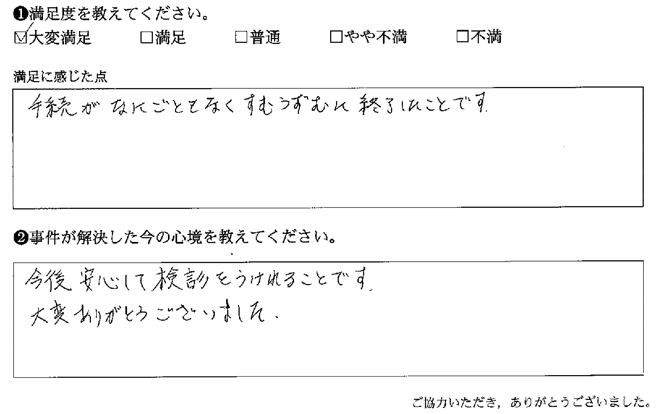 ❶満足度を教えてください。
☑大変満足 □満足 □普通 □やや不満 □不満
満足に感じた点
手続が なにごともなく すむうずむに 終了したことです
❷事件が解決した今の心境を教えてください。
今後 安心して 検診をうけれることです.
大変ありがとうございました.
ご協力いただき，ありがとうございました。